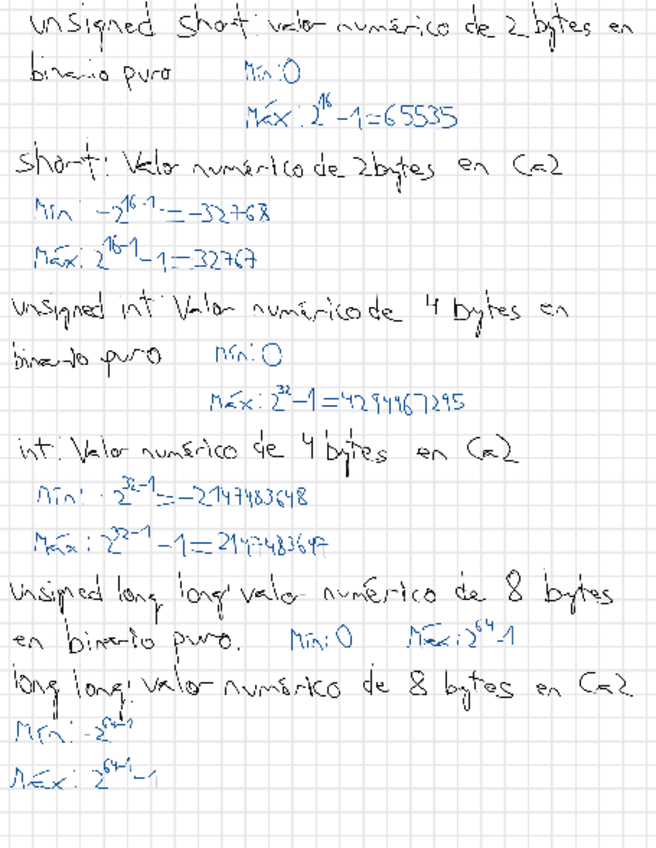 unsigned short: valor numérico de 2 bytes en
binario puro Mín: 0
Máx: 2^16 -1=65535
short: Valor numérico de 2bytes en Ca2
Mín: -2^16-1 = -32768
Máx: 2^16-1 -1=32767
unsigned int: Valor numérico de 4 bytes en
binario puro Mín: 0
Máx: 2^32 -1=4294967295
int: Valor numérico de 4 bytes en Ca2
Mín: -2^32-1 = -2147483648
Máx: 2^32-1 -1=2147483647
unsigned long long: valor numérico de 8 bytes
en binario puro. Mín: 0 Máx: 2^64 -1
long long: valor numérico de 8 bytes en Ca2
Mín: -2^64-1
Máx: 2^64-1 -1